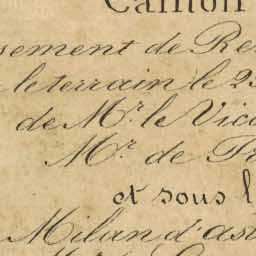 Camon
sement de Re
le terrain le 23
de Mr. le Vic
Mr. de Fr
et sous l
Milan d'ast